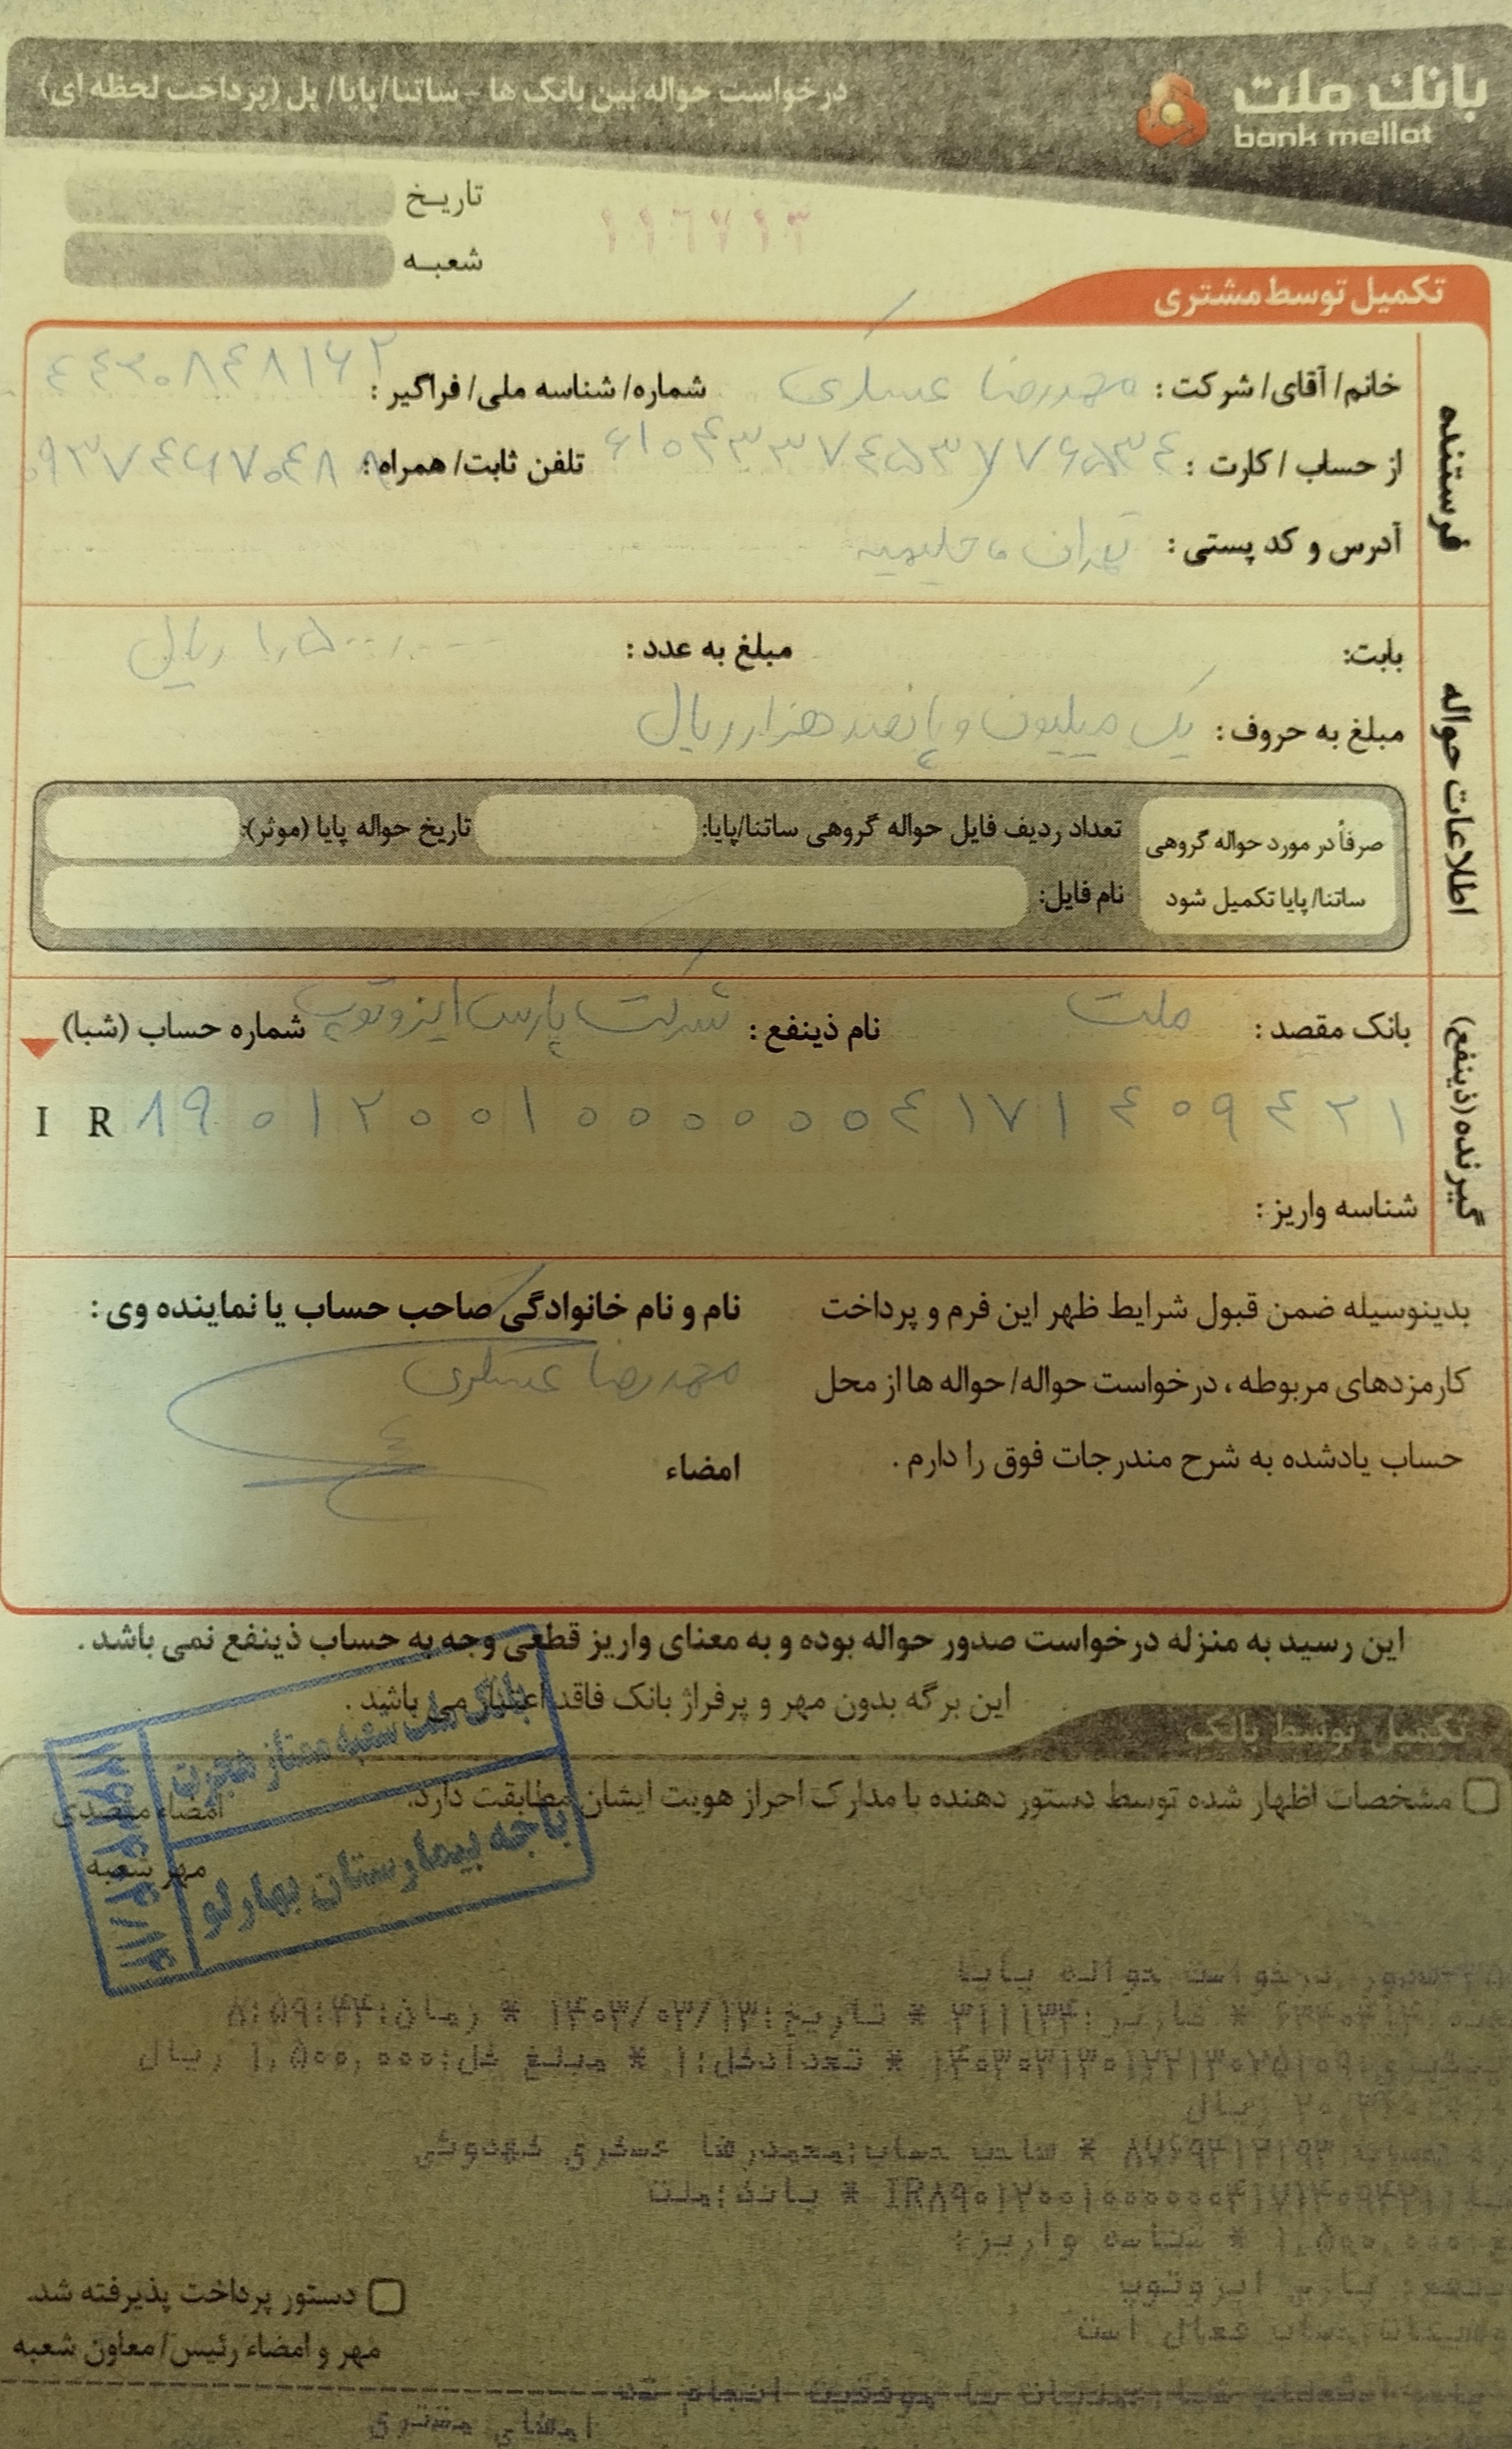 بانک ملت
bank mellat
درخواست حواله بین بانک ها - ساتنا/پایا/ پل (پرداخت لحظه ای)
تاریخ
شعبه
۱۱۶۷۱۳
تکمیل توسط مشتری
فرستنده
خانم/ آقای/ شرکت : محمدرضا عسکری شماره/ شناسه ملی/ فراگیر : ۴۴۳۰۸۴۸۱۶۲
از حساب / کارت : ۶۱۰۴۳۳۷۴۵۳۷۷۶۵۳۴ تلفن ثابت/ همراه :
آدرس و کد پستی : تهران
اطلاعات حواله
بابت: مبلغ به عدد : ۱,۵۰۰,۰۰۰ ریال
مبلغ به حروف : یک میلیون و پانصد هزار ریال
صرفاً در مورد حواله گروهی ساتنا/ پایا تکمیل شود
تعداد ردیف فایل حواله گروهی ساتنا/پایا: تاریخ حواله پایا (موثر):
نام فایل:
گیرنده (ذینفع)
بانک مقصد : ملت نام ذینفع : شرکت پارس ایزوتوپ شماره حساب (شبا)
I R ۸۹۰۱۲۰۰۱۰۰۰۰۰۰۴۱۷۱۴۰۹۴۲۱
شناسه واریز :
بدینوسیله ضمن قبول شرایط ظهر این فرم و پرداخت
کارمزدهای مربوطه ، درخواست حواله/ حواله ها از محل
حساب یادشده به شرح مندرجات فوق را دارم .
نام و نام خانوادگی صاحب حساب یا نماینده وی :
محمدرضا عسکری
امضاء
این رسید به منزله درخواست صدور حواله بوده و به معنای واریز قطعی وجه به حساب ذینفع نمی باشد .
این برگه بدون مهر و پرفراژ بانک فاقد اعتبار می باشد .
تکمیل توسط بانک
مشخصات اظهار شده توسط دستور دهنده با مدارک احراز هویت ایشان مطابقت دارد.
امضاء متصدی
مهر شعبه
بانک ملت شعبه ممتاز هجرت
باجه بیمارستان بهارلو
درخواست حواله پایا
تاریخ:۱۴۰۳/۰۳/۱۳ * زمان:۸:۵۹:۴۴
تعدادکل:۱ * مبلغ کل:۱,۵۰۰,۰۰۰ ریال
ریال
۸۷۶۹۴۱۲۱۹۳ * صاحب حساب:محمدرضا عسکری
IR۸۹۰۱۲۰۰۱۰۰۰۰۰۰۴۱۷۱۴۰۹۴۲۱ * بانک:ملت
۱,۵۰۰,۰۰۰ * شناسه واریز:
پارس ایزوتوپ
فعال است
دستور پرداخت پذیرفته شد.
مهر و امضاء رئیس/ معاون شعبه
با موفقیت انجام شد
امضای مشتری